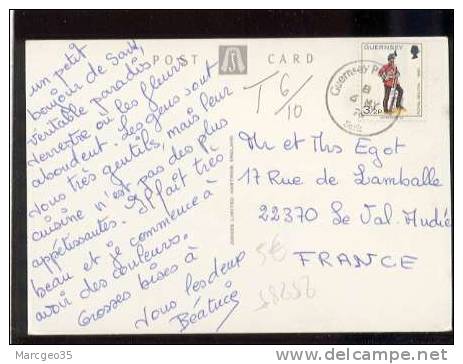 POST CARD
un petit
bonjour de Sark,
véritable paradis
terrestre où les fleurs
abondent. Les gens sont
tous très gentils, mais leur
cuisine n'est pas des plus
appétissantes. Il fait très
beau et je commence à
avoir des couleurs.
Grosses bises à
vous les deux
Béatrice
T 6/10
Guernsey
GUERNSEY
3½p
Mr et Mrs Egot
17 Rue de Lamballe
22370 Le Val André
FRANCE
5€
58252
Marcgeo35
www.delcampe.net